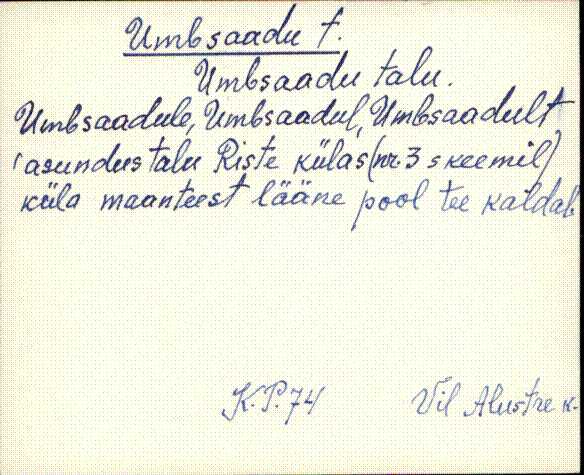 Umbsaadu t.
Umbsaadu talu.
Umbsaadule, Umbsaadul, Umbsaadult
'asundus talu Riste külas (nr. 3 skeemil)
küla maanteest lääne pool tee kaldab
K.P. 74 Vil Alustre k-